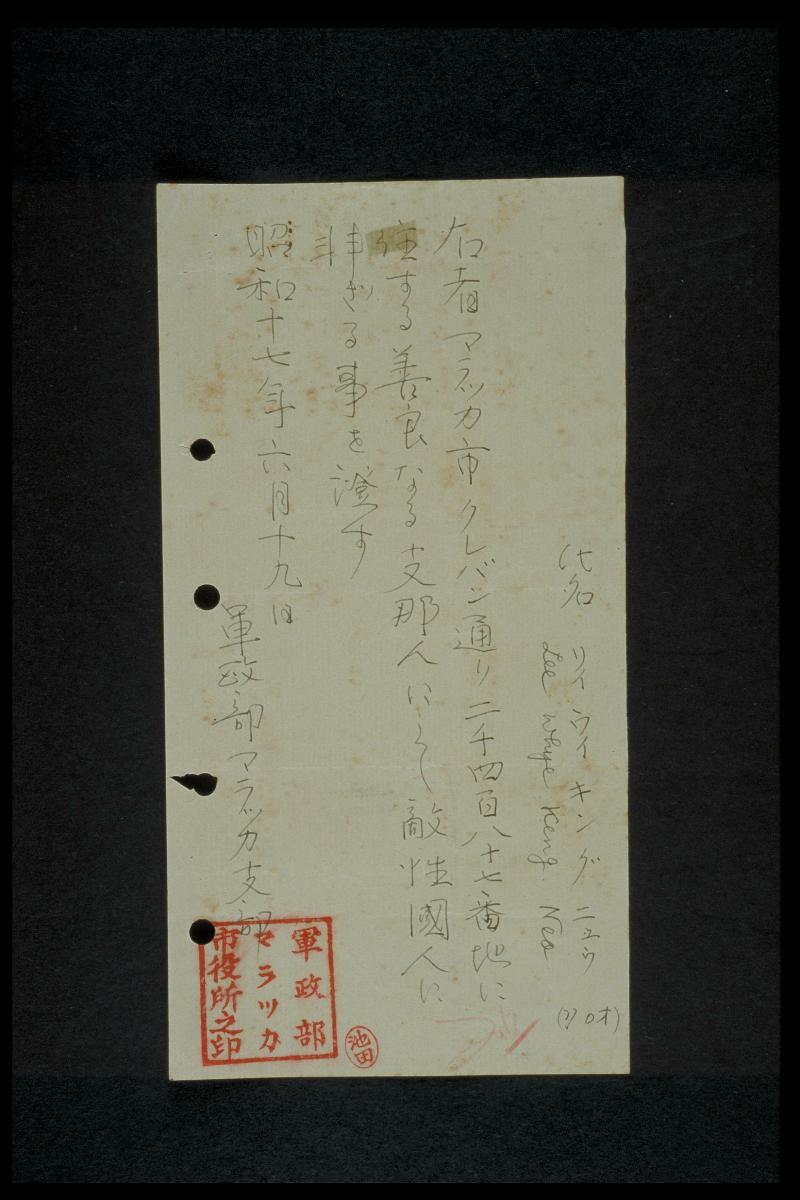 氏名 リイ ウイ キング ニュウ
Lee Whye Keng Neo
(20才)
右者マラッカ市クレバン通り二千四百八十七番地に
住する善良なる支那人にして敵性國人に
非ざる事を證す
昭和十七年六月十九日
軍政部マラッカ支部
軍政部
マラッカ
市役所之印
池田